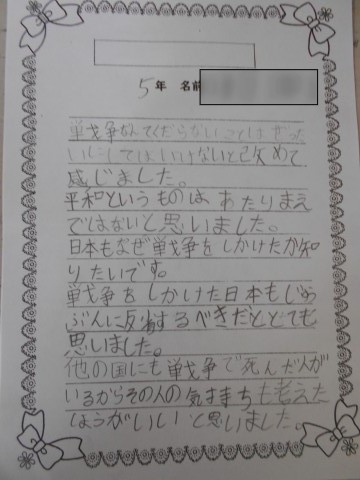 5年 名前
戦争なんてくだらないことはぜった
いにしてはいけないと改めて
感じました。
平和というものは あたりまえ
ではないと思いました。
日本もなぜ戦争をしかけたか知
りたいです。
戦争をしかけた日本もじゅう
ぶんに反省するべきだととても
思いました。
他の国にも戦争で死んだ人が
いるからその人の気持ちも考えた
ほうがいいと思いました。